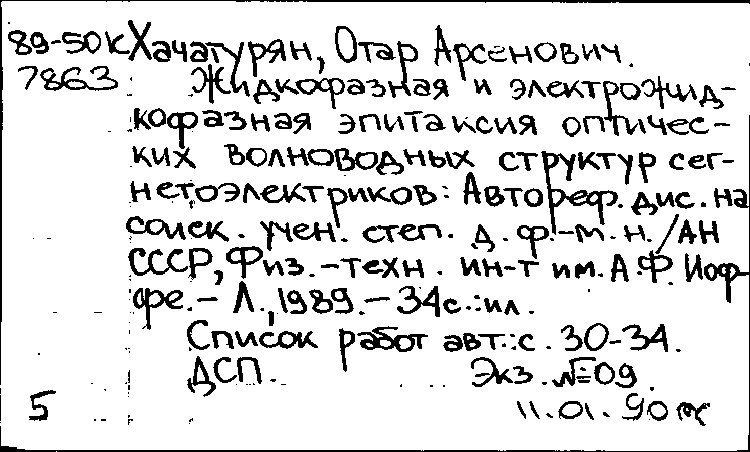 89-50к Хачатурян, Отар Арсенович.
7863 Жидкофазная и электрожид-
кофазная эпитаксия оптичес-
ких волноводных структур сег-
нетоэлектриков: Автореф. дис. на
соиск. учен. степ. д. ф.-м. н. / АН
СССР, Физ.-техн. ин-т им. А.Ф. Иоф-
фе. - Л., 1989. - 34 с.: ил.
Список работ авт.: с. 30-34.
ДСП. Экз. №09.
5 11.01.90